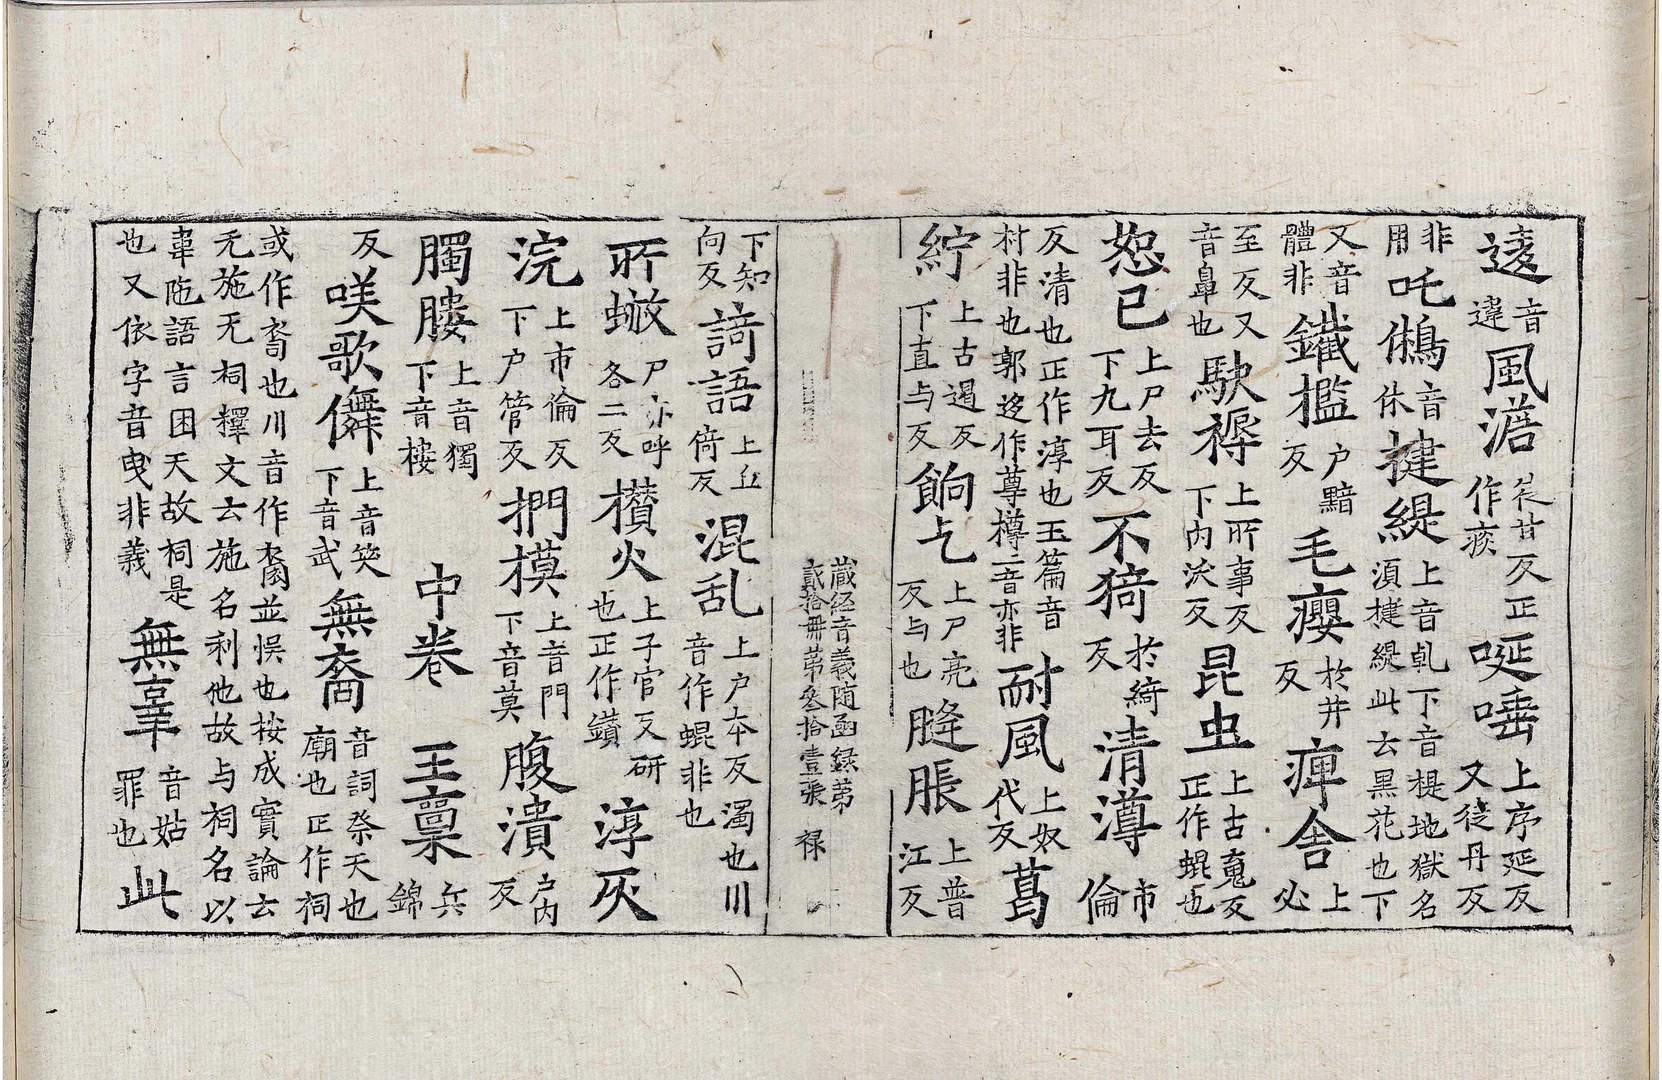 逺音違風澘炭甘反正作痰唌唾上序延反又徒丹反
非用吒鵂音休揵緹上音乹下音提地獄名湏揵緹此云黑花也下
又音體非鐵檻户黯反毛癭於井反痺舍上必
至反又音鼻也駚褥上所事反下内沃反昆虫上古䰟反正作蜫也
恕已上尸去反下九耳反不猗於綺反清漙市倫
反清也正作淳也玉篇音村非也郭迻作尊樽二音亦非耐風上奴代反葛
紵上古遏反下直与反餉乞上尸亮反与也膖脹上普江反
藏経音義随函録第貳拾冊第叄拾壹張 禄
下知向反謌語上丘倚反混乱上户本反濁也川音作蜫非也
所螫尸亦呼各二反欑火上子官反研也正作鑽淳灰
浣上市倫反下户管反捫摸上音門下音莫腹潰户内反
髑髏上音獨下音樓 中卷 王稟兵錦
反㗛歌儛上音笑下音武無裔音詞祭天也廟也正作祠
或作裔也川音作裔並悮也桉成實論云无施无祠釋文云施名利他故与祠名以
韋陁語言因天故祠是也又依字音曳非義無辜音姑罪也此